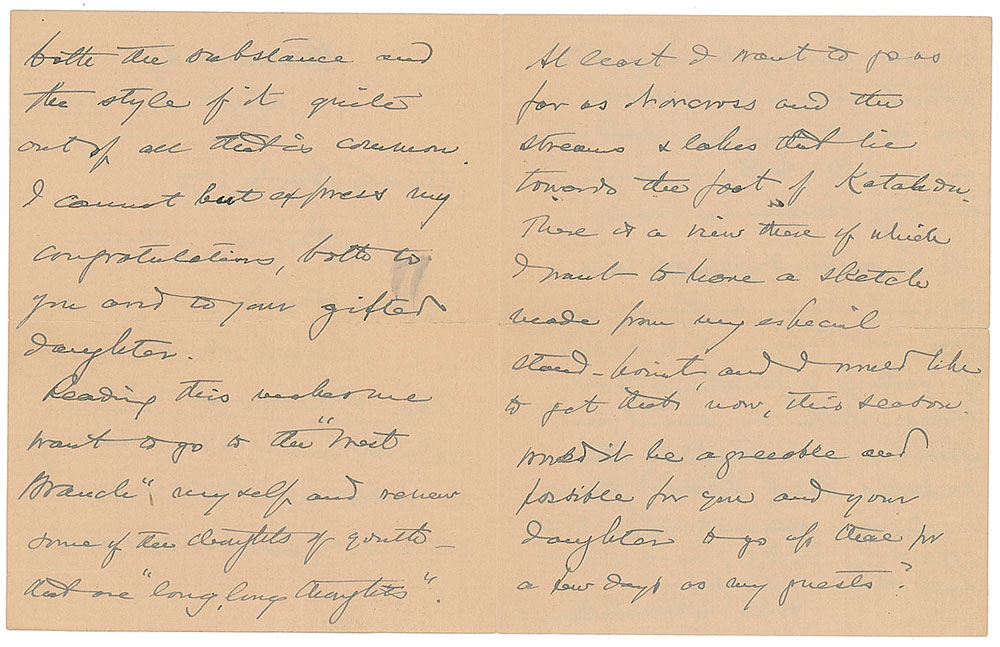 both the substance and
the style of it quite
out of all that is common.
I cannot but express my
congratulations, both to
you and to your gifted
daughter.
Reading this makes me
want to go to the "West
Branch", myself, and renew
some of the thoughts of youth –
that are "long, long thoughts".
At least I want to go as
far as Norcross and the
streams & lakes that lie
towards the foot of Katahdn.
There is a view there of which
I want to have a sketch
made from my especial
stand-point, and I would like
to get that now, this season.
Would it be agreeable and
possible for you and your
daughter to go up there for
a few days as my guests?